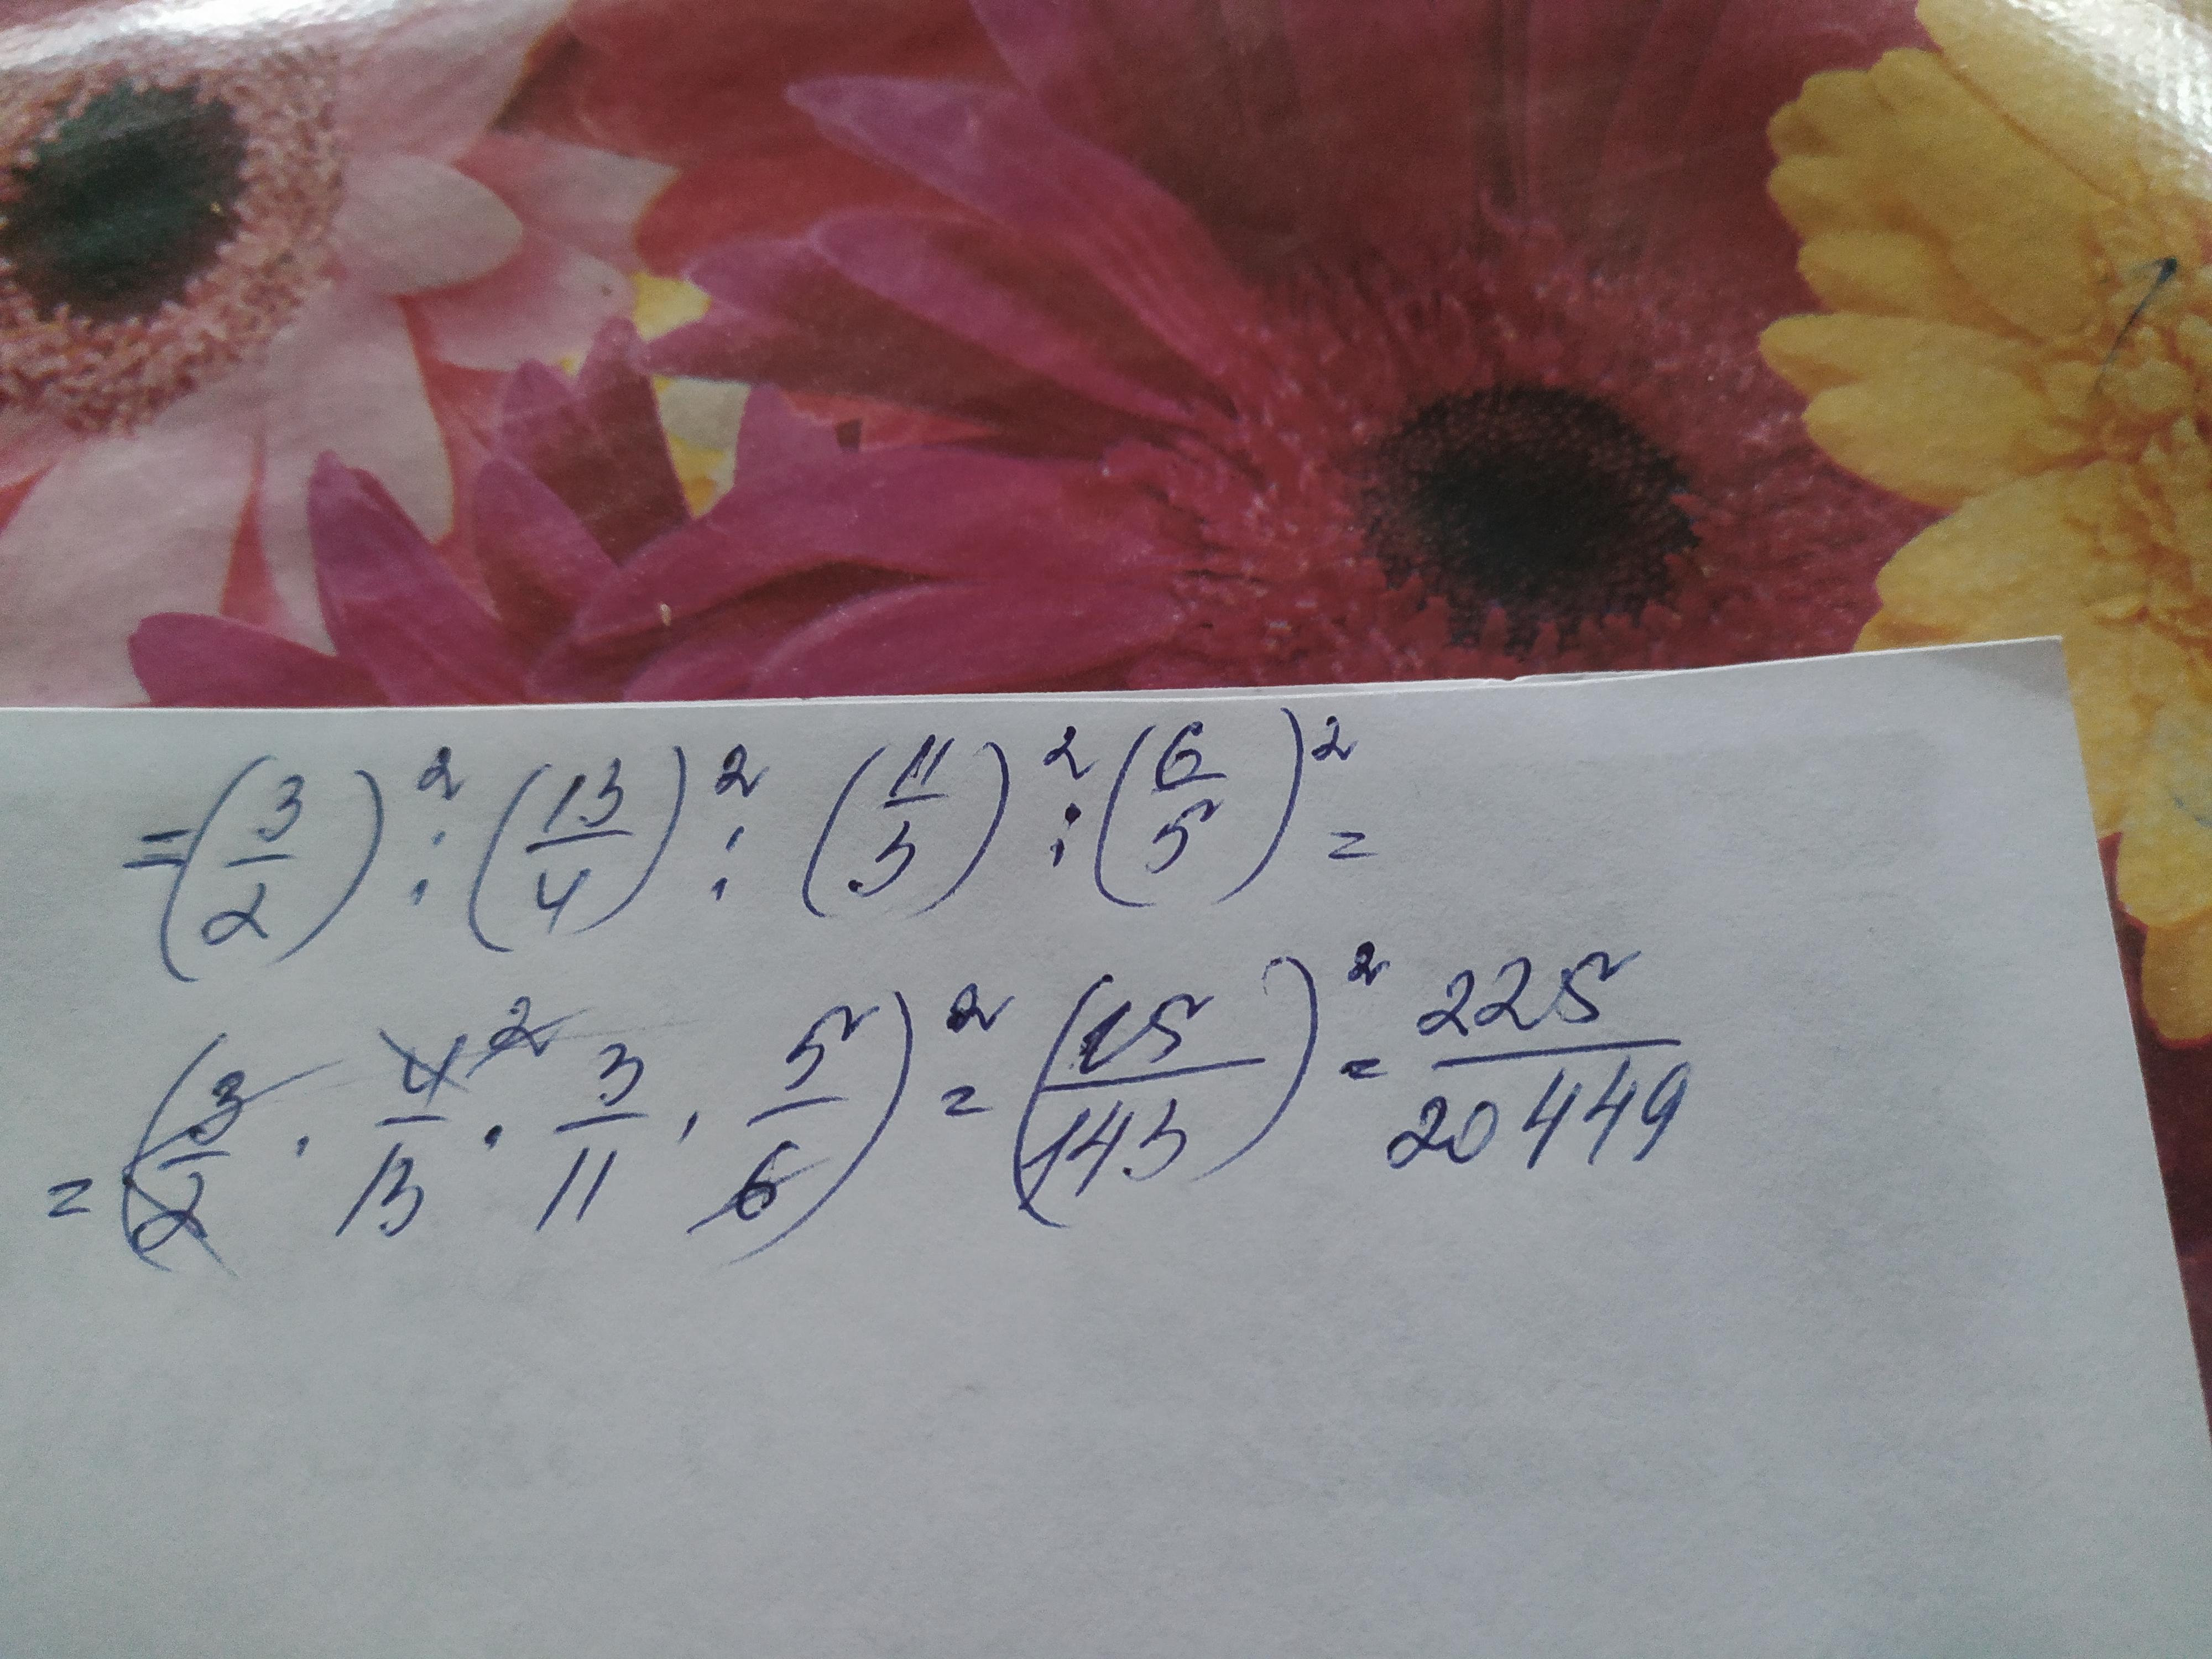 =(3/2)² : (13/4)² : (11/3)² : (6/5)² =
= (3/2 · 4²/13 · 3/11 · 5/6)² = (15/143)² = 225/20449